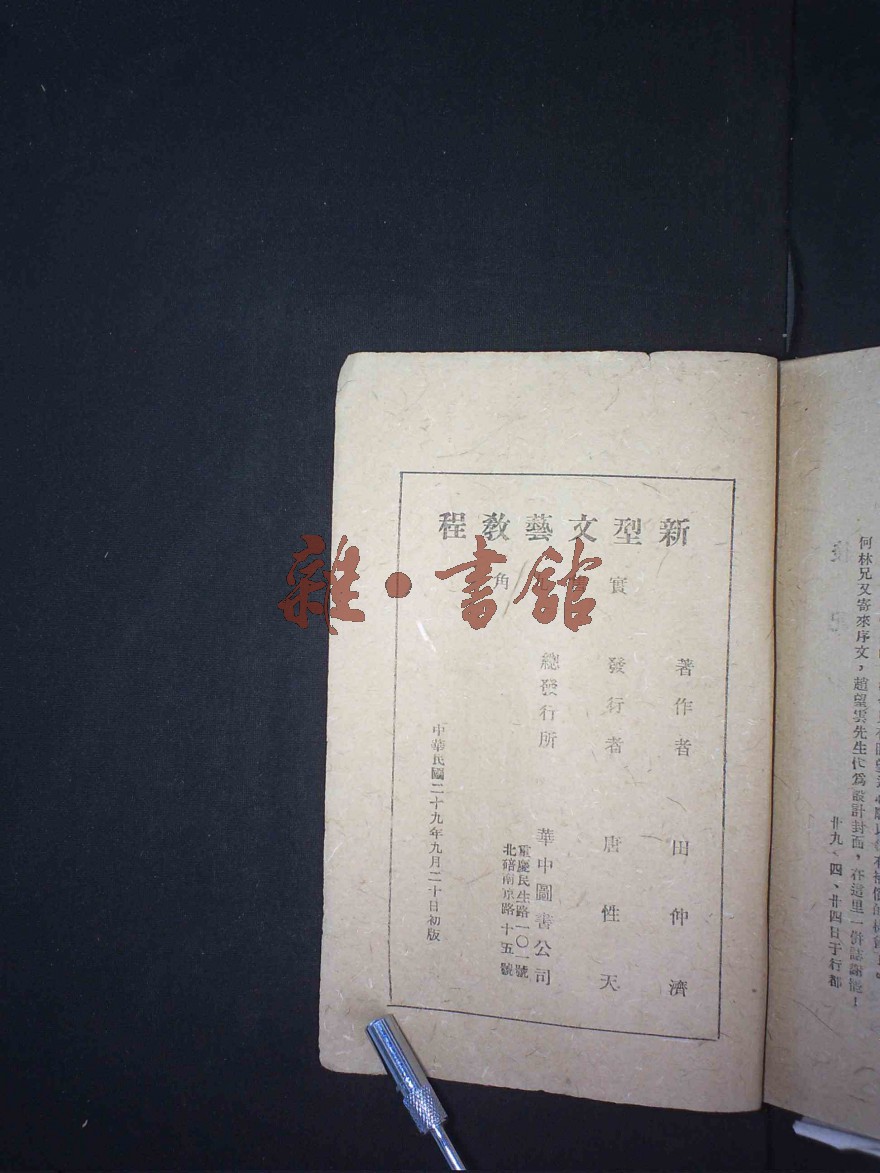 何林兄又寄來序文，趙望雲先生代爲設計封面，在這里一併誌謝意！
廿九、四、廿四日于行都
新型文藝教程
實 角
著作者 田仲濟
發行者 唐性天
總發行所 華中圖書公司
重慶民生路一〇一號
北碚南京路十五號
中華民國二十九年九月二十日初版
雜·書館